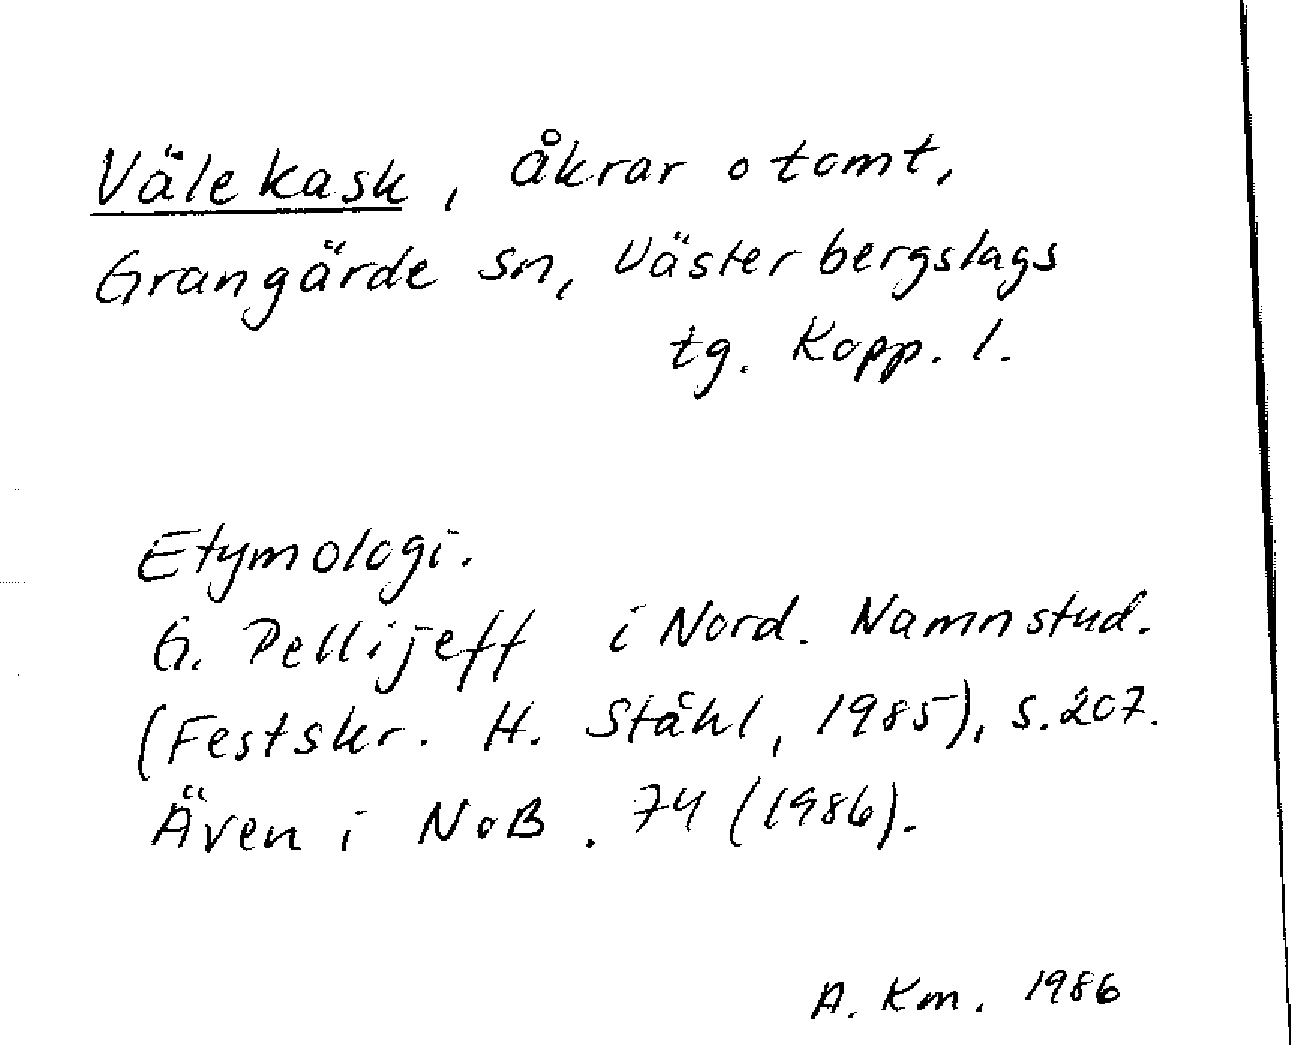 Välekask, åkrar o tomt,
Grangärde sn, Västerbergslags
tg. Kopp. l.
Etymologi.
G. Pellijeff i Nord. Namnstud.
(Festskr. H. Ståhl, 1985), s. 207.
Även i NoB. 74 (1986).
A. Km. 1986